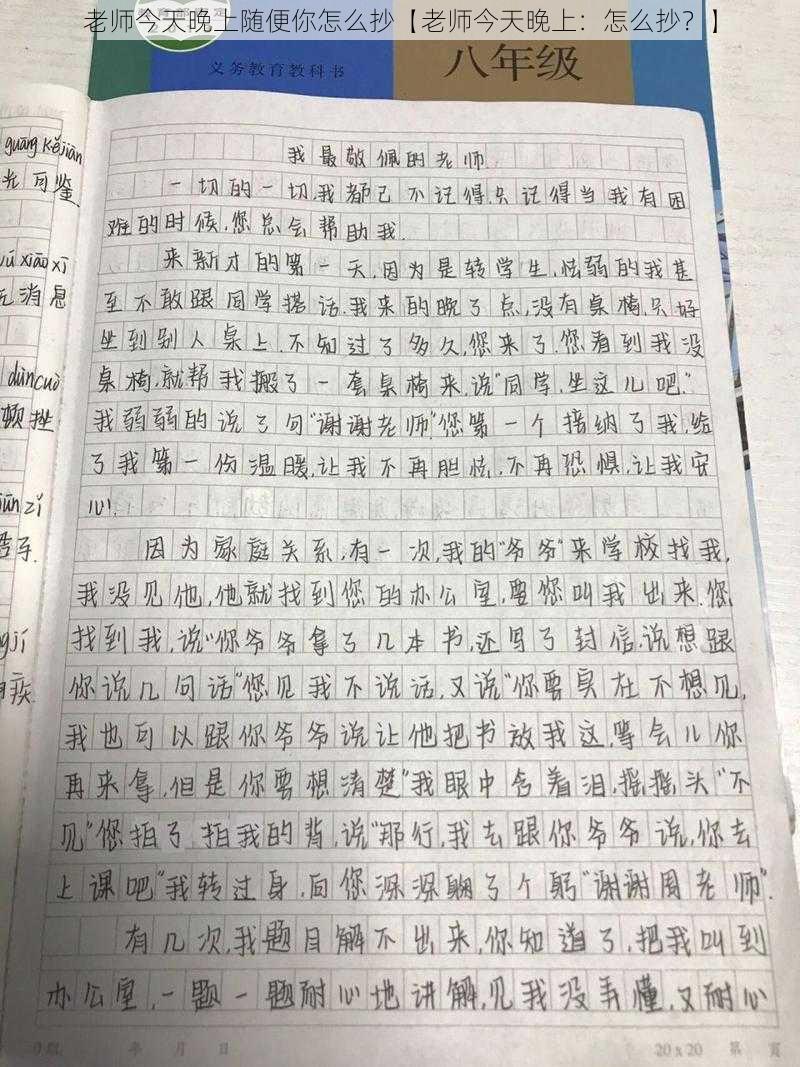 老师今天晚上随便你怎么抄【老师今天晚上：怎么抄？】
义务教育教科书
八年级
guāng kě jiàn
光可鉴
xiāo xī
消息
dùn cuò
顿挫
zǐ
疾
我最敬佩的老师
一切的一切,我都已不记得.只记得当我有困
难的时候,您总会帮助我.
来新才的第一天,因为是转学生,怯弱的我甚
至不敢跟同学搭话.我来的晚了点,没有桌椅,只好
坐到别人桌上.不知过了多久,您来了.您看到我没
桌椅,就帮我搬了一套桌椅来,说"同学,坐这儿吧."
我弱弱的说了句"谢谢老师"您第一个接纳了我,给
了我第一份温暖,让我不再胆怯,不再恐惧,让我安
心.
因为家庭关系,有一次,我的"爷爷"来学校找我,
我没见他,他就找到您的办公室,要您叫我出来.您
找到我,说"你爷爷拿了几本书,还写了封信,说想跟
你说几句话"您见我不说话,又说"你要实在不想见,
我也可以跟你爷爷说让他把书放我这,等会儿你
再来拿,但是你要想清楚"我眼中含着泪,摇摇头"不
见"您拍了拍我的背,说"那行,我去跟你爷爷说,你去
上课吧"我转过身,向您深深鞠了个躬"谢谢周老师".
有几次,我题目解不出来,你知道了,把我叫到
办公室,一题一题耐心地讲解,见我没弄懂,又耐心
年 月 日
20x20 第 页